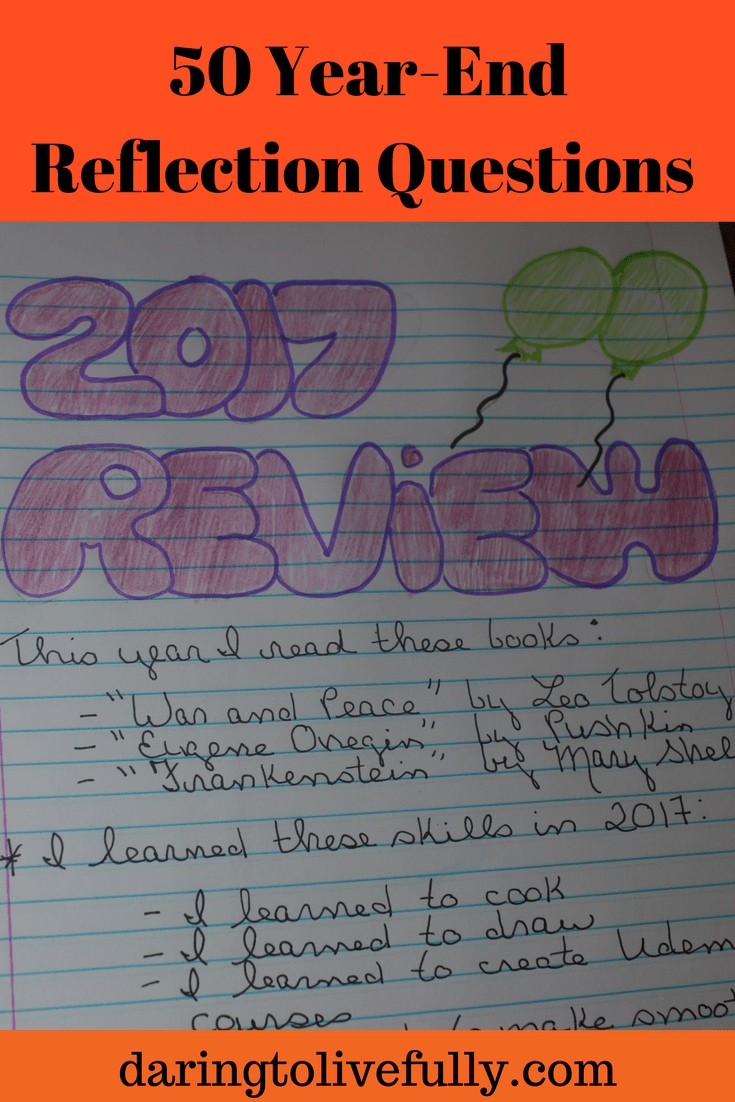 50 Year-End
Reflection Questions
2017
REViEW
This year I read these books:
- "War and Peace" by Leo Tolstoy
- "Eugene Onegin" by Pushkin
- "Frankenstein" by Mary Shel
* I learned these skills in 2017:
- I learned to cook
- I learned to draw
- I learned to create Udem
courses
make smoot
daringtolivefully.com